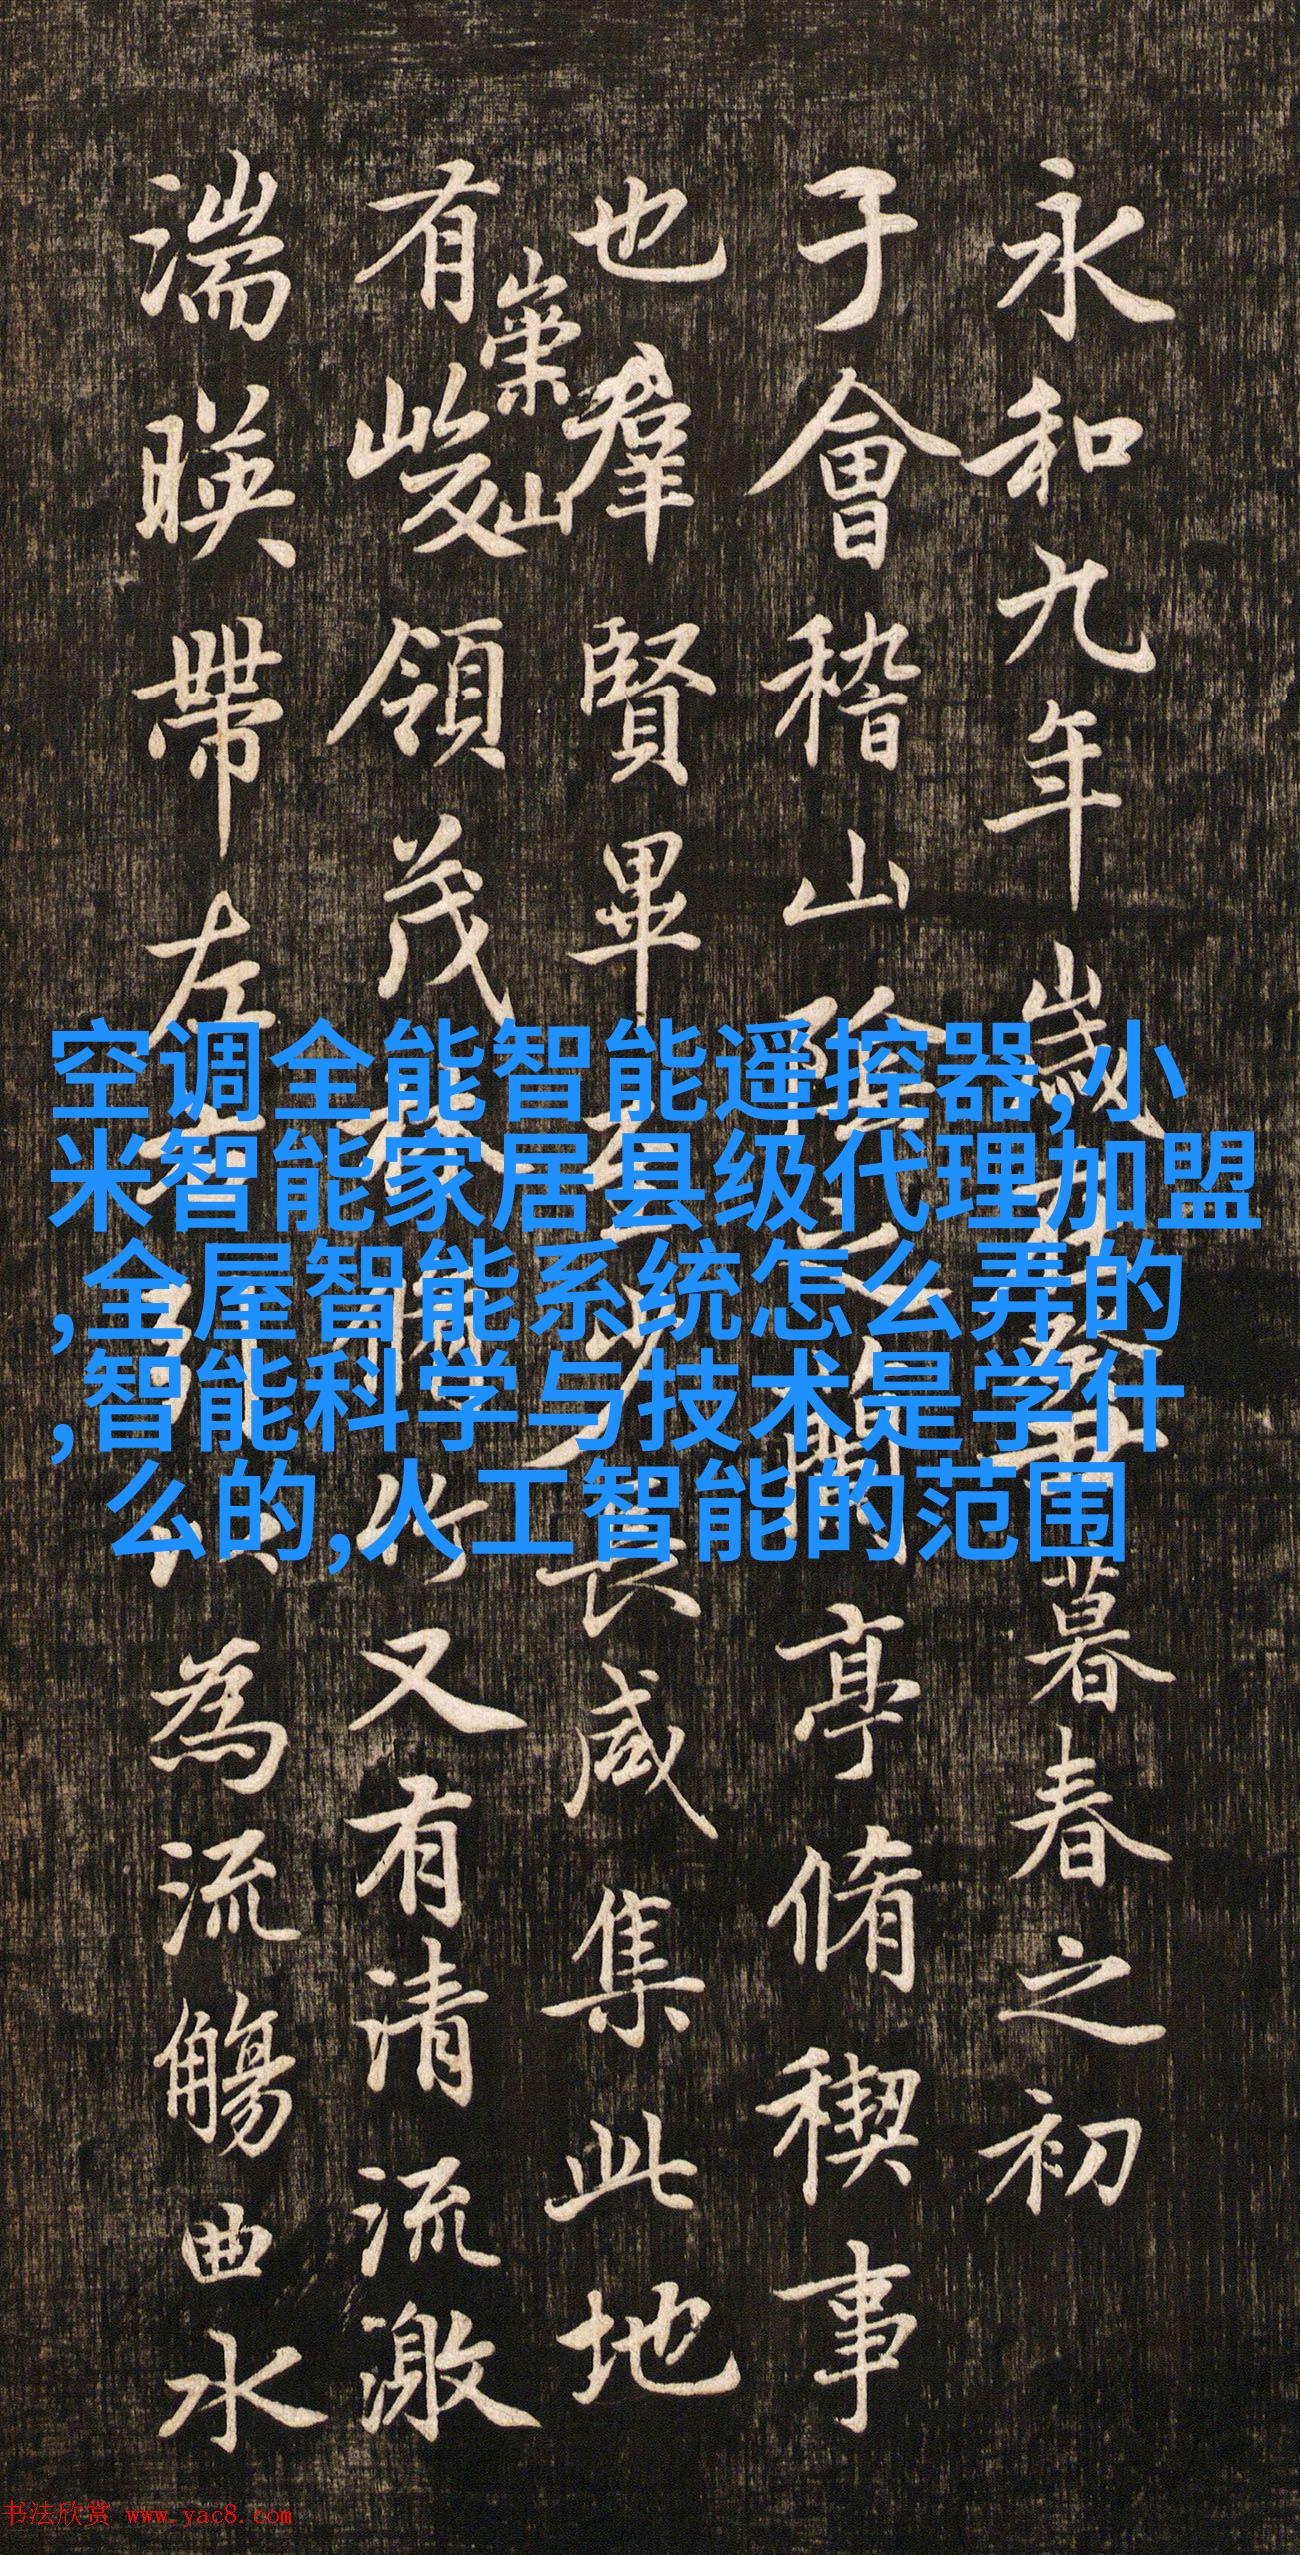 永和九年歲在癸丑暮春之初
于會稽山陰之蘭亭脩稧事
也羣賢畢至少長咸集此地
有崇山峻領茂林脩竹又有清流激
湍暎帶左右引以為流觴曲水
空调全能智能遥控器,小
米智能家居县级代理加盟
,全屋智能系统怎么弄的
,智能科学与技术是学什
么的,人工智能的范围
书法欣赏 www.yac8.com